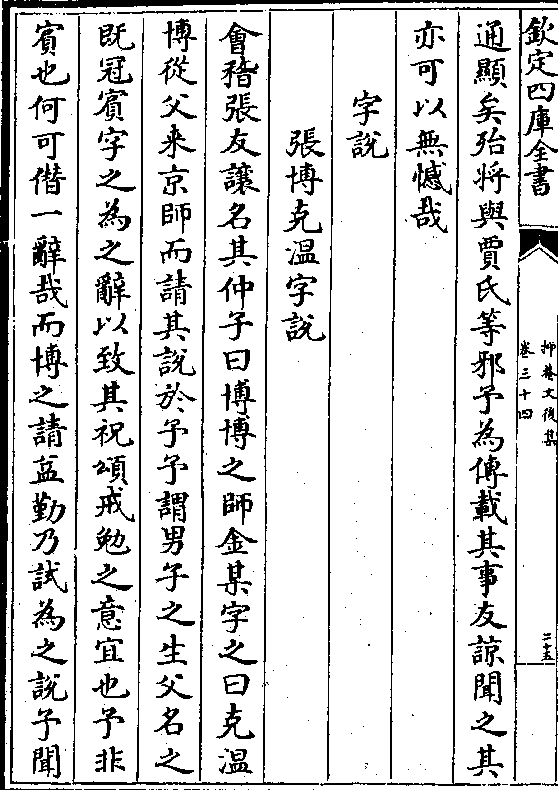 欽定四庫全書
抑菴文後集
卷三十四
二十五
通顯矣殆將與賈氏等邪予為傳載其事友諒聞之其
亦可以無憾哉
字說
張博克溫字說
會稽張友讓名其仲子曰博博之師金某字之曰克溫
博從父来京師而請其說於予予謂男子之生父名之
既冠賓字之為之辭以致其祝頌戒勉之意宜也予非
賓也何可僭一辭哉而博之請益勤乃試為之說予聞